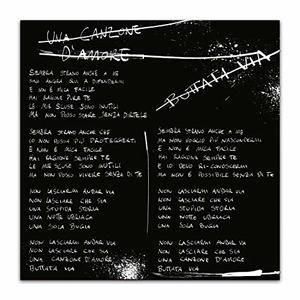 UNA CANZONE
D'AMORE
BUTTATA VIA
SEMBRA STRANO ANCHE A ME
SONO ANCORA QUI A DIFENDERMI
E NON È MICA FACILE
HAI RAGIONE SEMPRE TE
LE MIE SCUSE SONO INUTILI
MA NON POSSO STARE SENZA DIRTELE
SEMBRA STRANO ANCHE CHE
IO NON POSSA PIÙ PROTEGGERTI
E NON È MICA FACILE
HAI RAGIONE SEMPRE TE
LE MIE SCUSE SONO INUTILI
MA NON POSSO VIVERE SENZA DI TE
NON LASCIARMI ANDARE VIA
NON LASCIARE CHE SIA
UNA STUPIDA STORIA
UNA NOTTE UBRIACA
UNA SOLA BUGIA
NON LASCIARMI ANDARE VIA
NON LASCIARE CHE SIA
UNA CANZONE D'AMORE
BUTTATA VIA
SEMBRA STRANO ANCHE A ME
NON VOGLIO PIÙ NASCONDERMI
E NON È MICA FACILE
HAI RAGIONE SEMPRE TE
E IO DEVO RICONOSCERMI
MA NON È POSSIBILE SENZA DI TE
NON LASCIARMI ANDARE VIA
NON LASCIARE CHE SIA
UNA STUPIDA STORIA
UNA NOTTE UBRIACA
UNA SOLA BUGIA
NON LASCIARMI ANDARE VIA
NON LASCIARE CHE SIA
UNA CANZONE D'AMORE
BUTTATA VIA